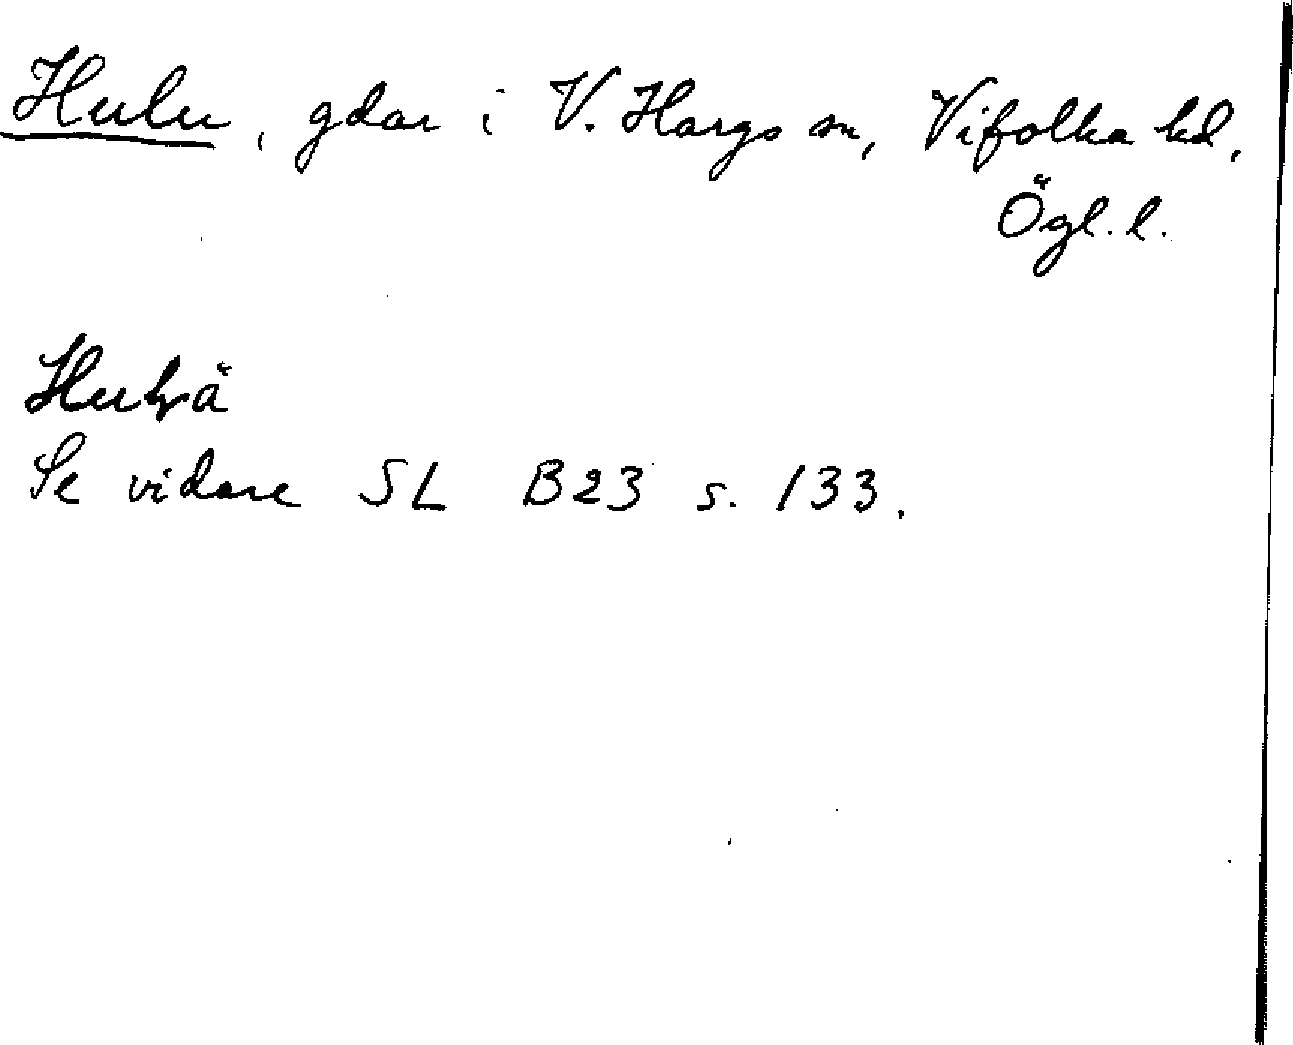 Hulu, gdar i V. Hargs sn, Vifolka hd,
Ögl. l.
Huträ
Se vidare SL B23 s. 133.